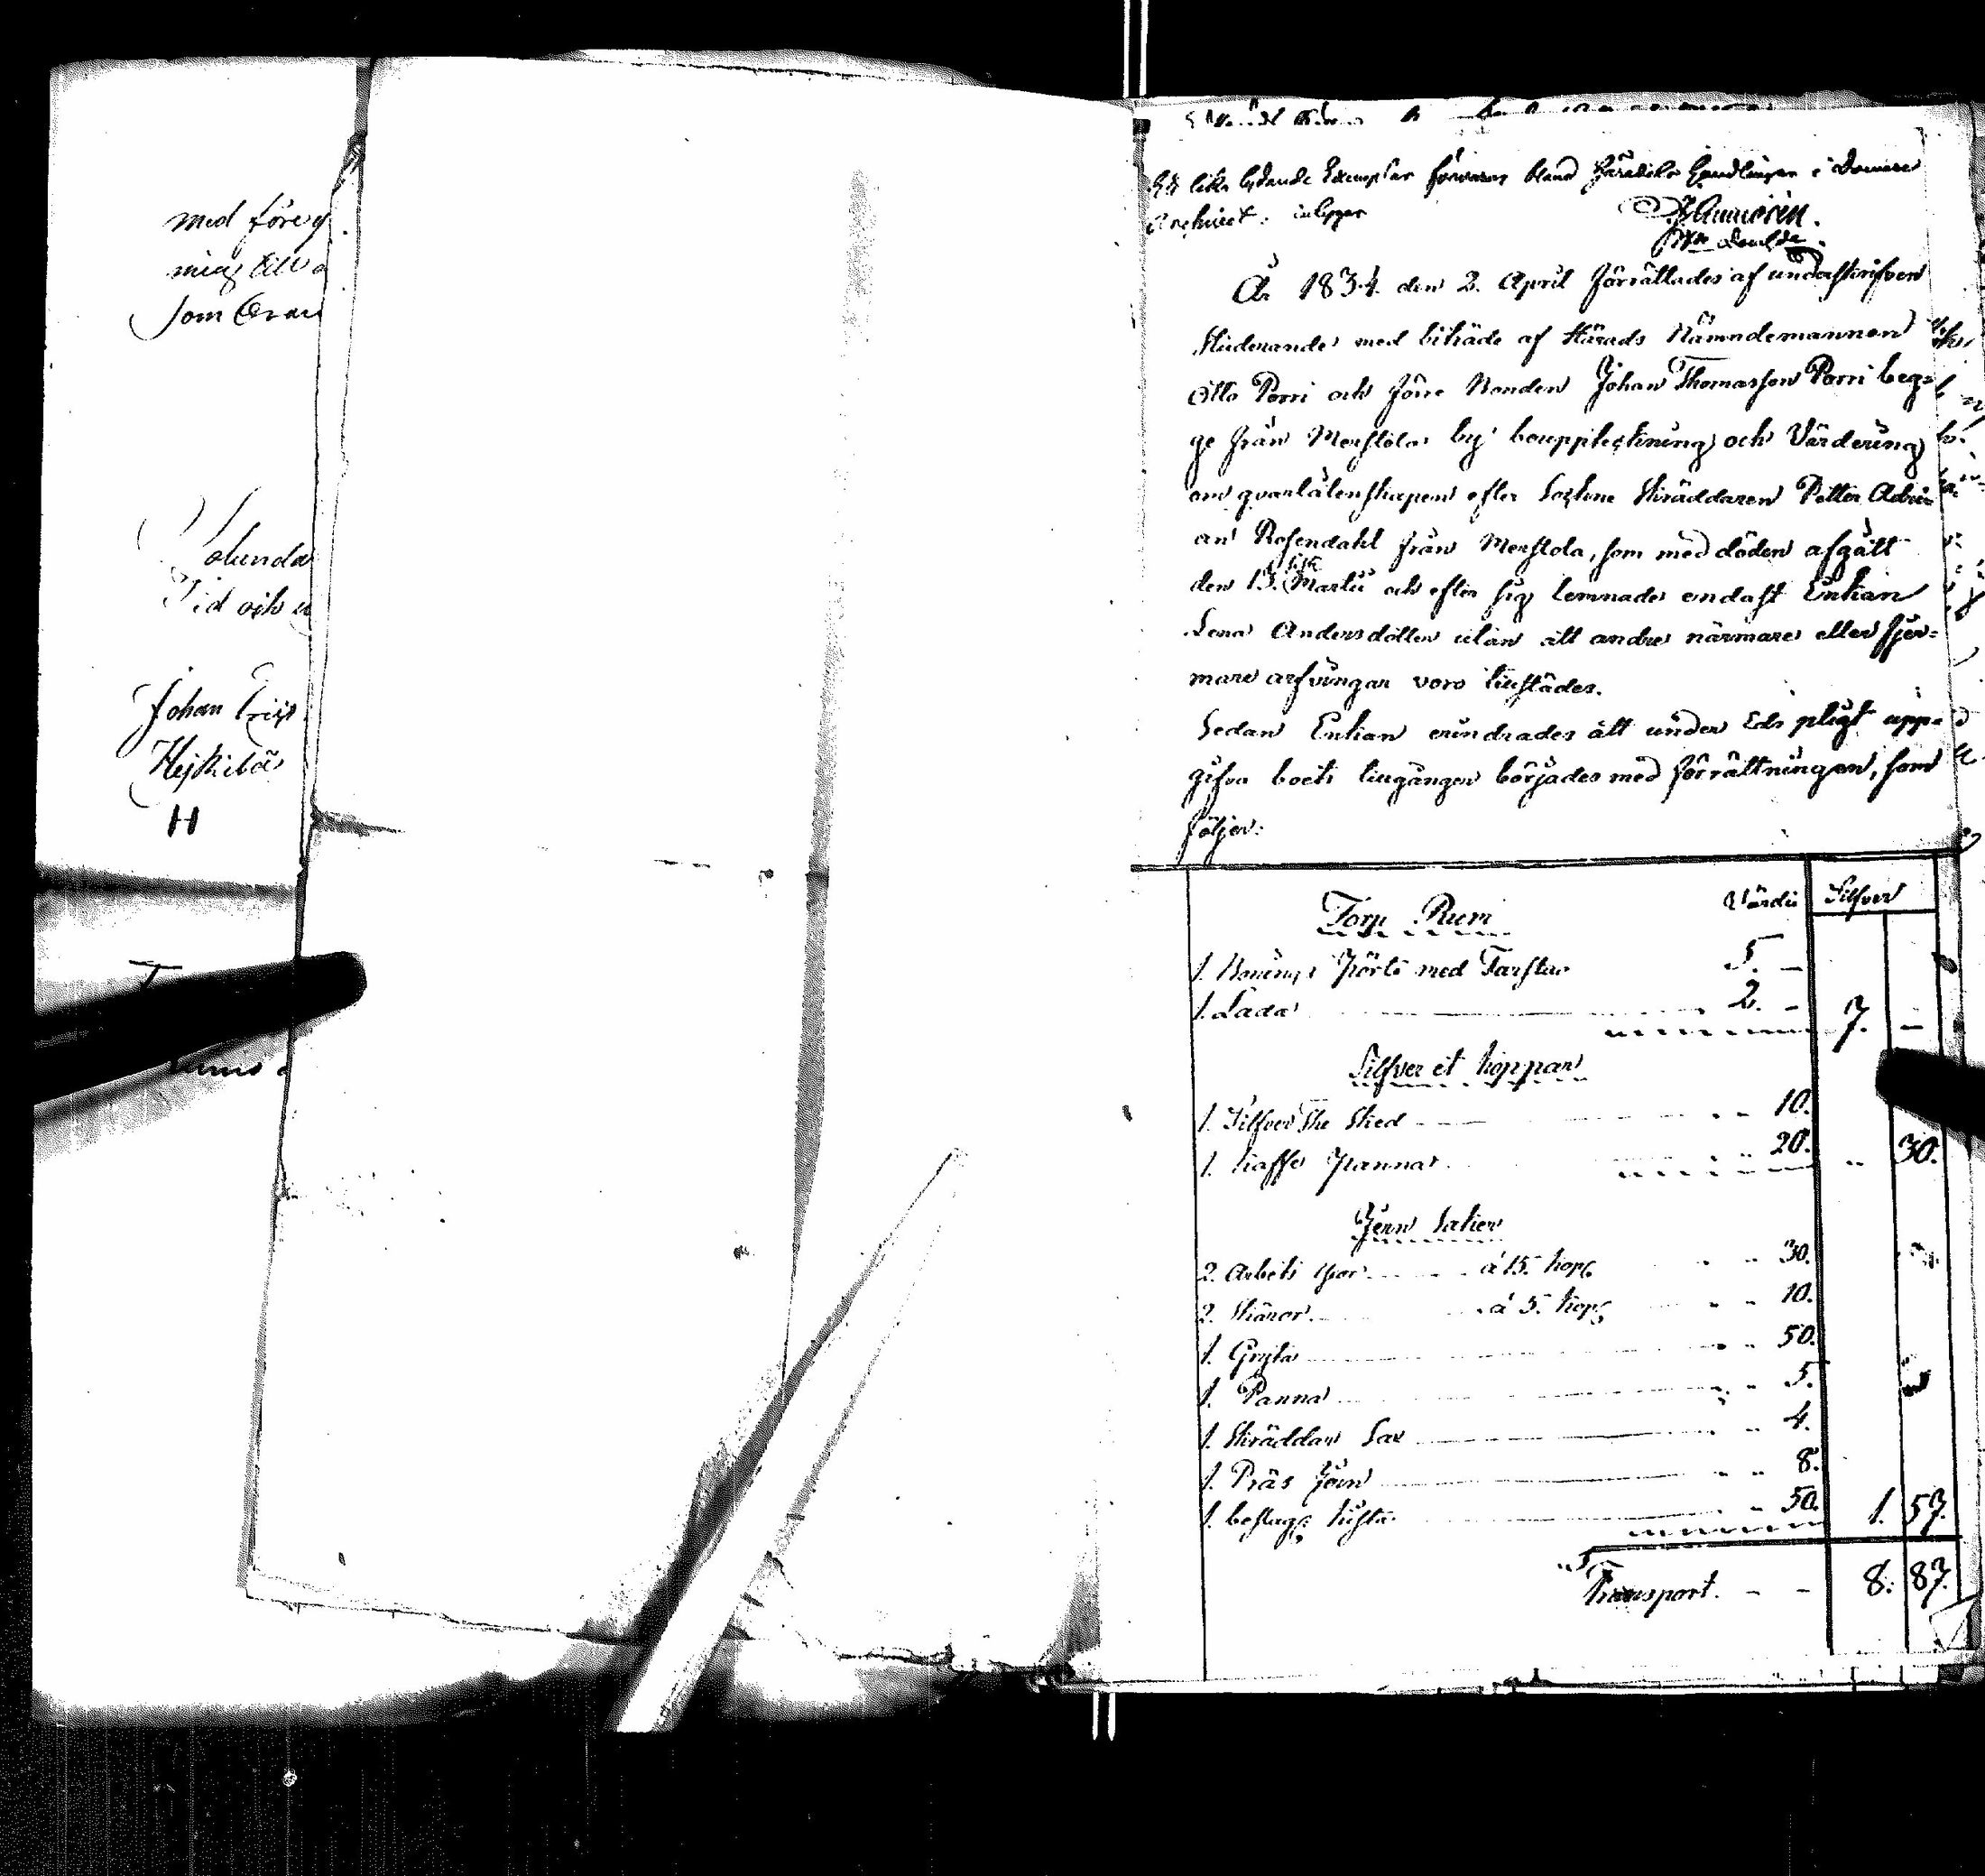 med före
ming till
som
olunda
Tid och
Johan
Heikilä
H
Ett lika lydande Exemplar förvaras bland Häradets Handlingar i Domare
Archivet. intygar
År 1834 den 2. April förrättades af underskrifven
Studerande med biträde af Härads Nämndemannen
Otto Porri och förre Bonden Johan Thomasson Porri beg=
ge från Merstola by bouppteckning och Värdering
om qvarlåtenskapen efter Sockne Skräddaren Petter Adri
an Rosendahl från Merstola, som med döden afgått
den 13. sistl. Martii och efter sig lemnade endast Enkan
Lena Andersdotter utan att andre närmare eller fjer=
mare arfvingar voro tillstädes.
Sedan Enkan erindrades att under Eds pligt upp=
gifva boets tillgångar börjades med förrättningen, som
följer:
Torp Rum Värdie Silfver
1. Bonings Pörte med Farstu 5. –
1. Lada 2. – 7. –
Silfver et koppar
1. Silfver The Sked 10.
1. kaffe panna 20. 30.
Jern Saker
2. Arbets yxor á 15. kop 30.
2. Skäror á 5. kop 10.
1. Gryta 50.
1. Panna 5.
1. Skräddar Sax 4.
1. Präs Jern 8.
1. beslag: kista 50. 1. 57.
Transport. – – 8. 87.